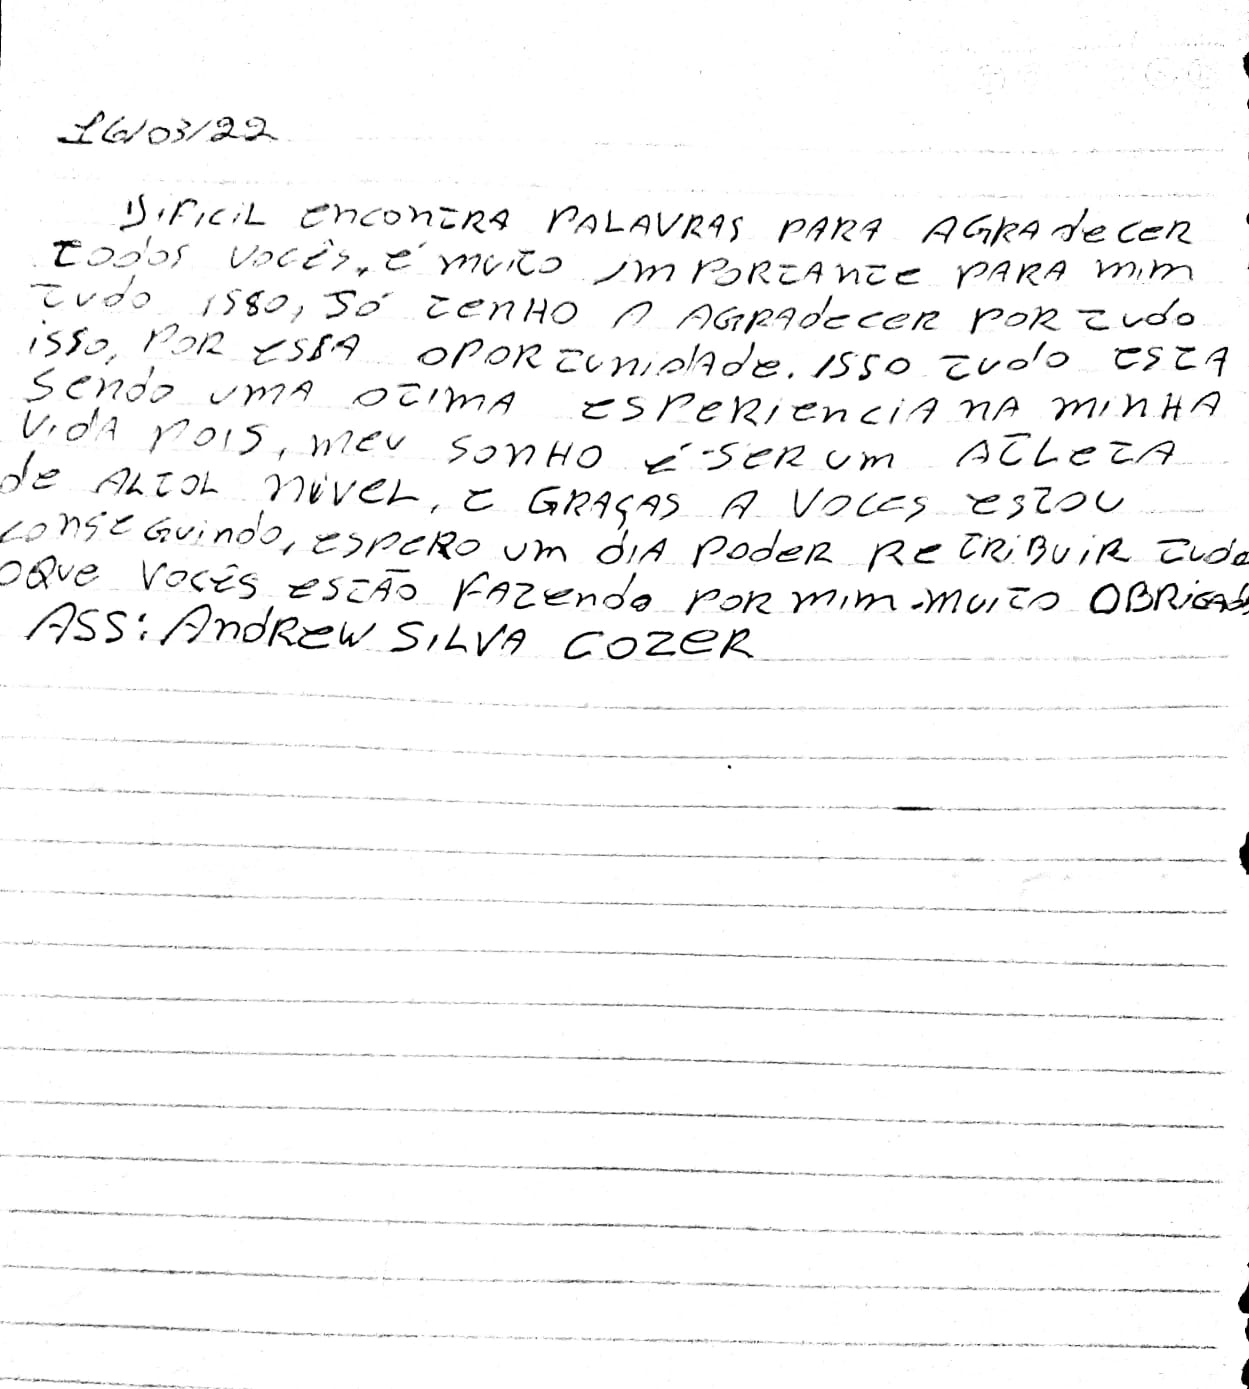 16/03/22
Dificil encontra palavras para agradecer
todos vocês, é muito importante para mim
tudo isso, só tenho a agradecer por tudo
isso, por essa oportunidade. isso tudo esta
sendo uma otima esperiencia na minha
vida pois, meu sonho é ser um atleta
de altol nível, e graças a voces estou
conseguindo, espero um dia poder retribuir tudo
oque vocês estão fazendo por mim. muito obrigado
Ass: Andrew Silva Cozer